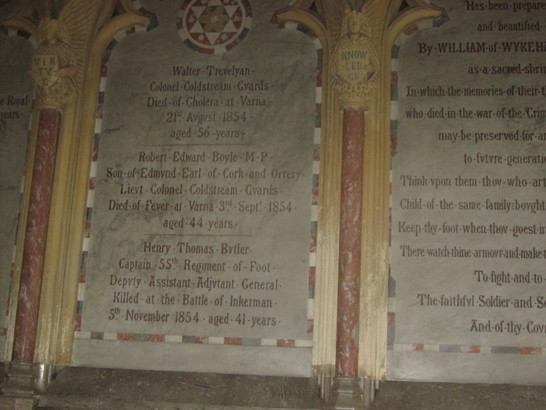 he Royal
years
VIR
TV
Walter · Trevelyan ·
Colonel · Coldstream · Gvards
Died · of · Cholera · at · Varna ·
21st Avgvst · 1854 ·
aged · 56 · years ·
Robert · Edward · Boyle · M · P ·
Son · of · Edmvnd · Earl · of · Cork · and · Orrery ·
Lievt · Colonel · Coldstream · Gvards ·
Died · of · Fever · at · Varna · 3rd · Septr · 1854
aged · 44 · years ·
Henry · Thomas · Bvtler ·
Captain · 55th · Regiment · of · Foot ·
Depvty · Assistant · Adjvtant · General ·
Killed · at · the · Battle · of · Inkerman ·
5th · November · 1854 · aged · 41 · years ·
KNOW
LED
GE
Has · been · prepare
and · beautified ·
By · WILLIAM · of · WYKEHA
as · a · sacred · shri
In · which · the · memories · of · their · t
who · died · in · the · war · of · the · Crim
may · be · preserved · for · a
to · fvtvre · generatio
Think · vpon · them · thov · who · art
Child · of · the · same · family · bovght
Keep · thy · foot · when · thov · goest · in
There · watch · thine · armovr · and · make · t
To · fight · and · to ·
The · faithfvl · Soldier · and · Se
And · of · thy · Cov